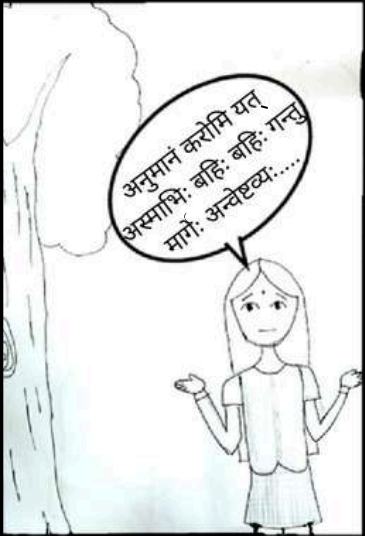 अनुमानं करोमि यत्
अस्माभिः बहिः बहिः गन्तु
मार्गेः अन्वेष्टव्यः.....